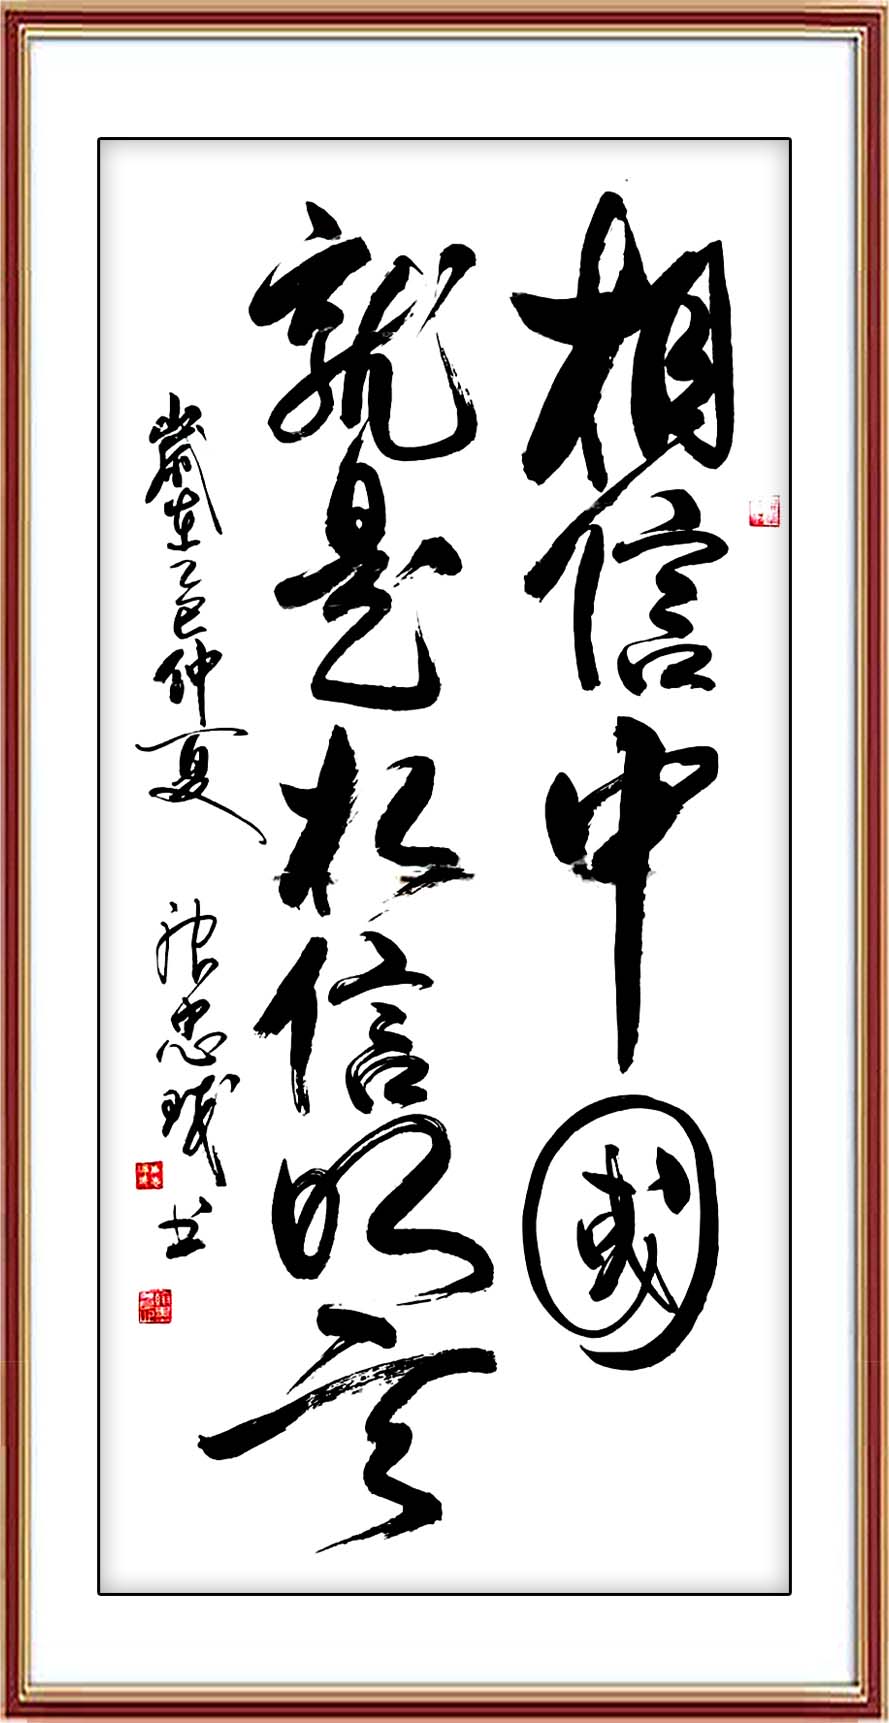 相信中國
就是相信明天
歲在乙巳仲夏 张忠书